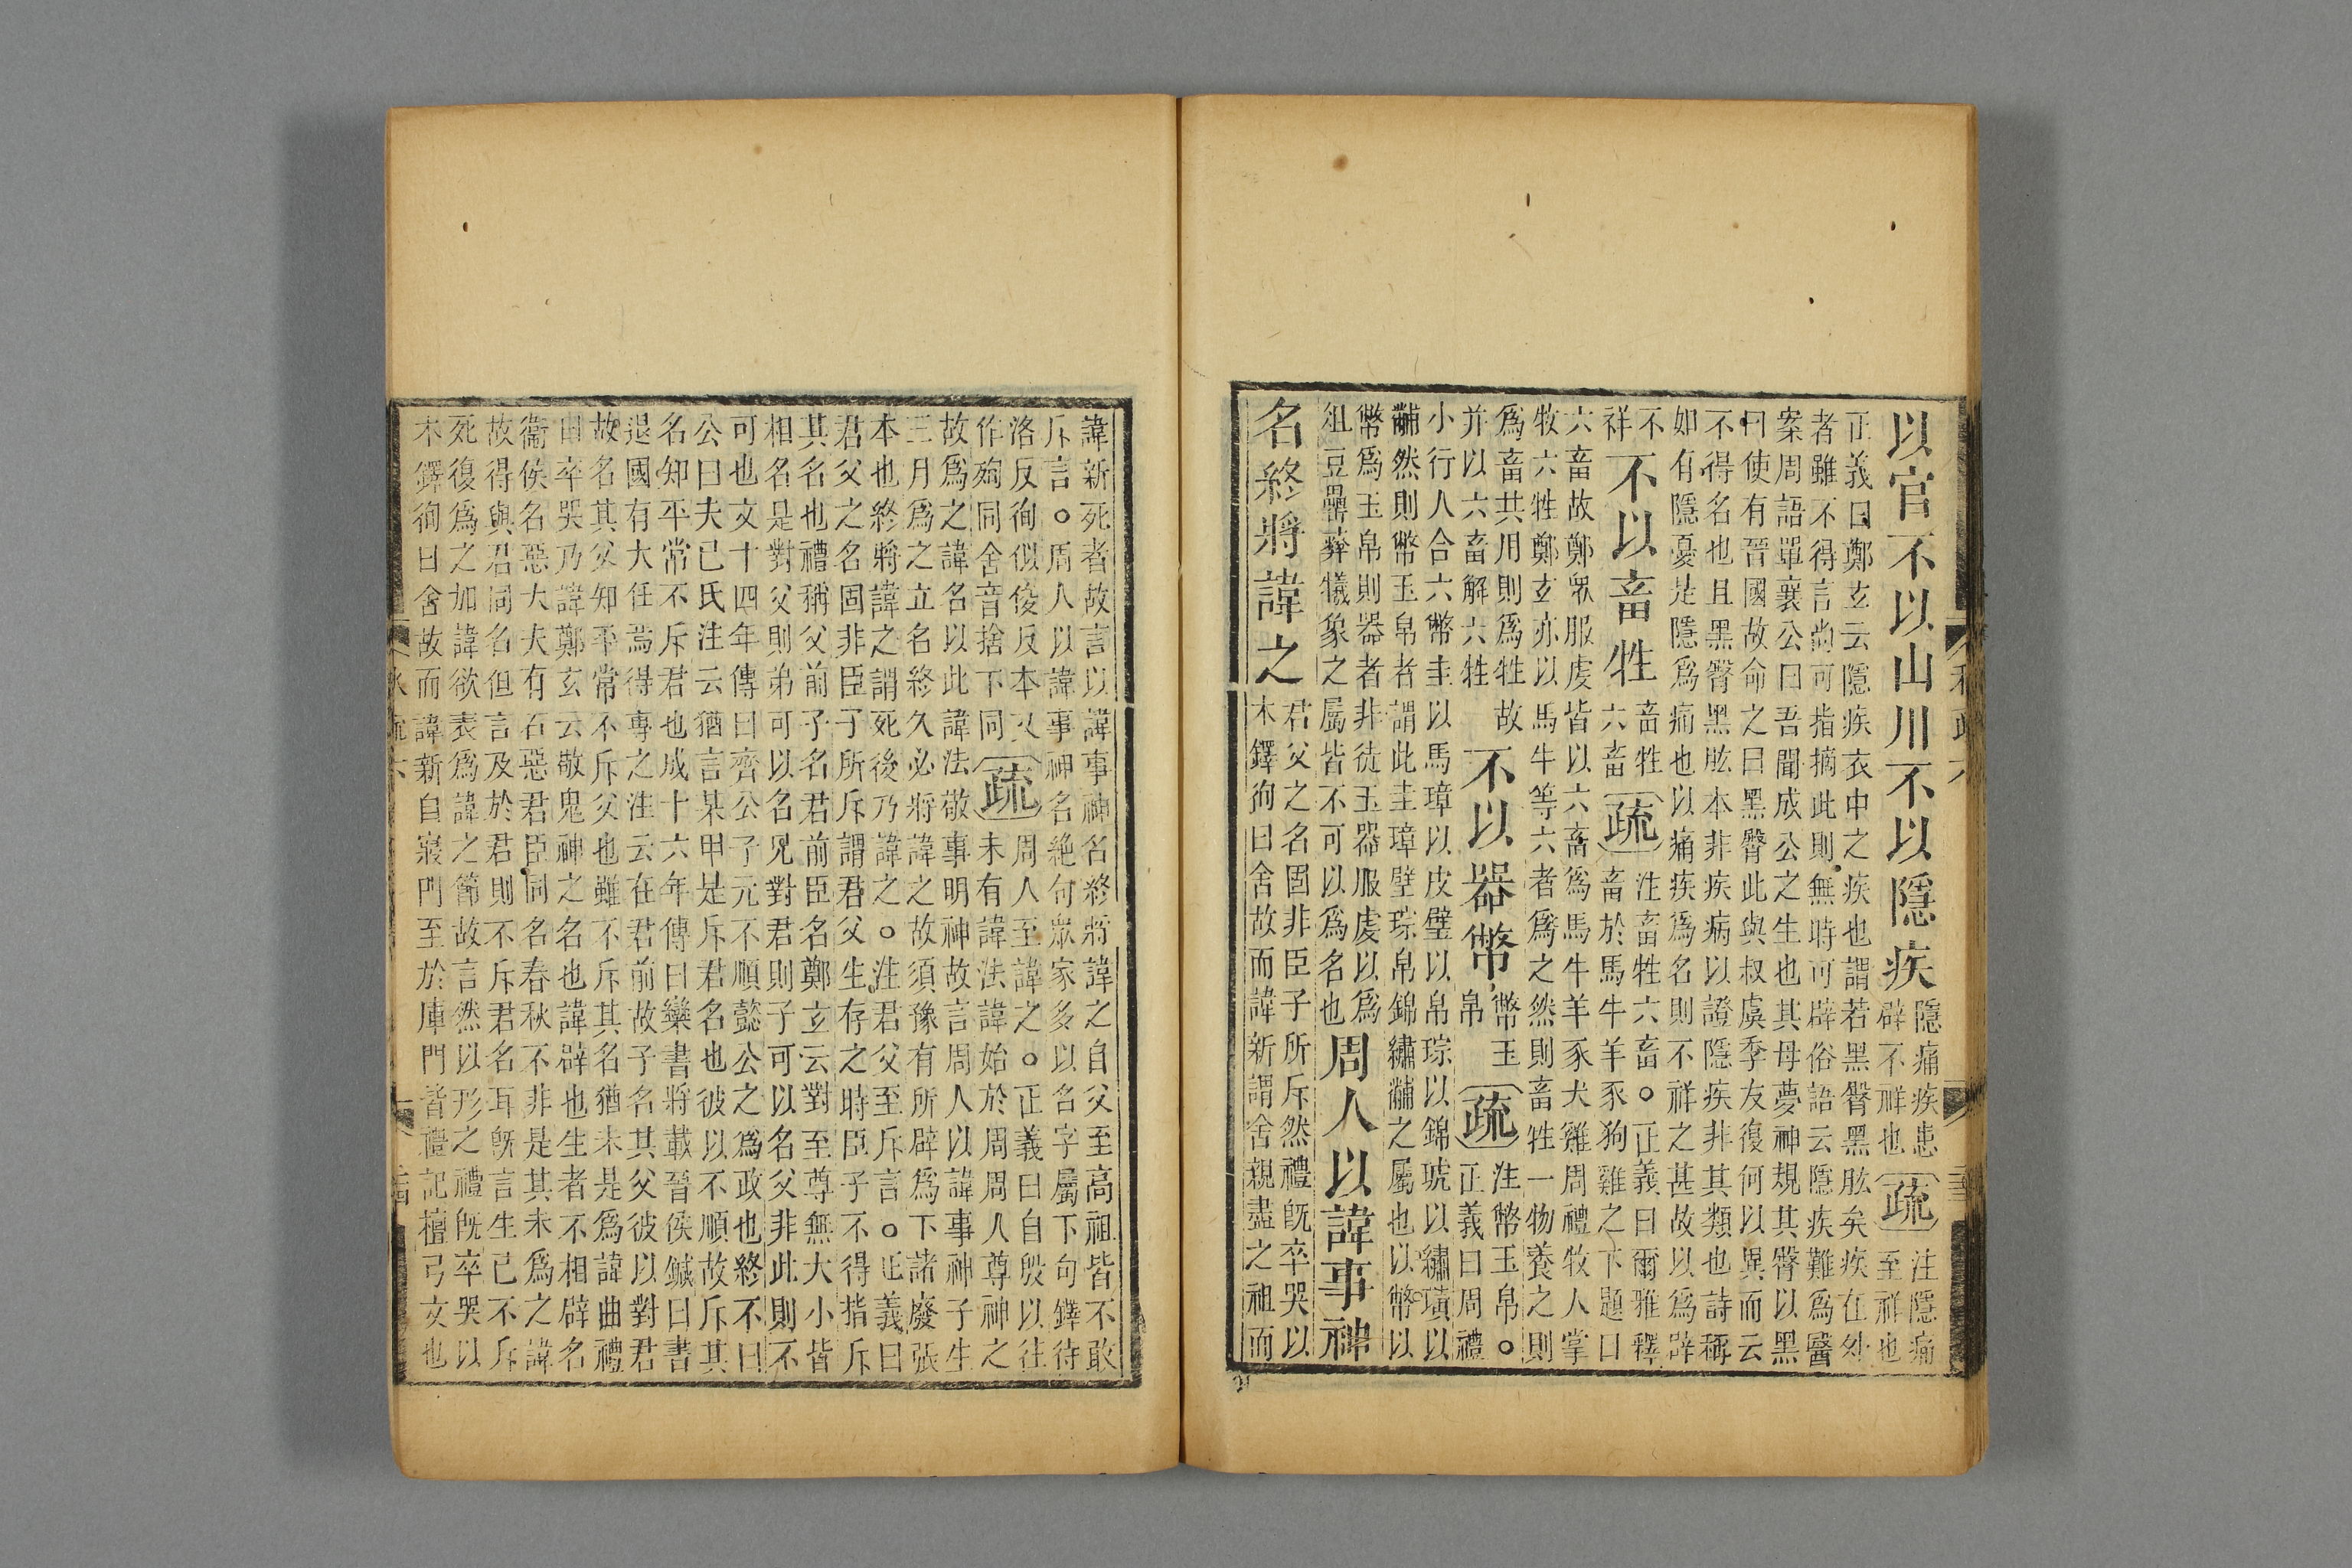 以官不以山川不以隱疾
隱痛疾患
辟不祥也
疏
注隱痛
至祥也
正義曰鄭玄云隱疾衣中之疾也謂若黑臀黑肱矣疾在外
者雖不得言尚可指摘此則無時可辟俗語云隱疾難爲醫
案周語單襄公曰吾聞成公之生也其母夢神規其臀以黑
曰使有晉國故命之曰黑臀此與叔虞季友復何以異而云
不得名也且黑臀黑肱本非疾病以證隱疾非其類也詩稱
如有隱憂是隱爲痛也以痛疾爲名則不祥之甚故以爲辟
不
祥
不以畜牲
畜牲
六畜
疏
注畜牲六畜○正義曰爾雅釋
畜於馬牛羊豕狗雞之下題曰
六畜故鄭衆服虔皆以六畜爲馬牛羊豕犬雞周禮牧人掌
牧六牲鄭玄亦以馬牛等六者爲之然則畜牲一物養之則
爲畜共用則爲牲故
并以六畜解六牲
不以器幣
幣玉
帛
疏
注幣玉帛○
正義曰周禮
小行人合六幣圭以馬璋以皮璧以帛琮以錦琥以繡璜以
黼然則幣玉帛者謂此圭璋璧琮帛錦繡黼之屬也以幣以
幣爲玉帛則器者非徒玉器服虔以爲
俎豆罍彝犧象之屬皆不可以爲名也
周人以諱事神
名終將諱之
君父之名固非臣子所斥然禮既卒哭以
木鐸徇曰舍故而諱新謂舍親盡之祖而
諱新死者故言以諱事神名終將諱之自父至高祖皆不敢
斥言○周人以諱事神名絶句衆家多以名字屬下句鐸待
洛反徇似俊反本又
作殉同舍音捨下同
疏
周人至諱之○正義曰自殷以往
未有諱法諱始於周周人尊神之
故爲之諱名以此諱法敬事明神故言周人以諱事神子生
三月爲之立名終久必將諱之故須豫有所辟爲下諸廢張
本也終將諱之謂死後乃諱之○注君父至斥言○正義曰
君父之名固非臣子所斥謂君父生存之時臣子不得指斥
其名也禮稱父前子名君前臣名鄭玄云對至尊無大小皆
相名是對父則弟可以名兄對君則子可以名父非此則不
可也文十四年傳曰齊公子元不順懿公之爲政也終不曰
公曰夫已氏注云猶言某甲是斥君名也彼以不順故斥其
名知平常不斥君也成十六年傳曰欒書將載晉侯鍼曰書
退國有大任焉得專之注云在君前故子名其父彼以對君
故名其父知平常不斥父也雖不斥其名猶未是爲諱曲禮
曰卒哭乃諱鄭玄云敬鬼神之名也諱辟也生者不相辟名
衞侯名惡大夫有石惡君臣同名春秋不非是其未爲之諱
故得與君同名但言及於君則不斥君名耳既言生已不斥
死復爲之加諱欲表爲諱之節故言然以形之禮既卒哭以
木鐸徇曰舍故而諱新自寢門至於庫門皆禮記檀弓文也